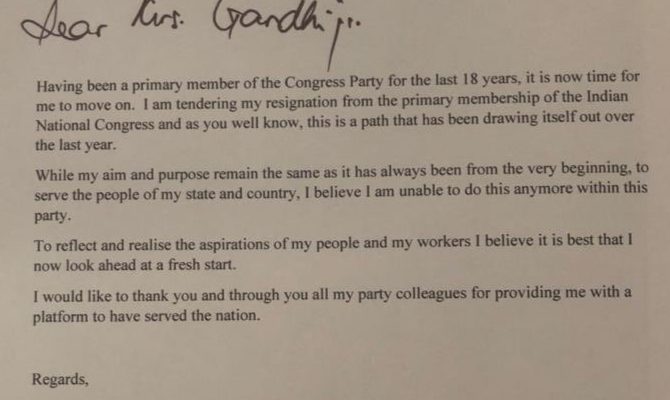 Dear Mrs. Gandhiji.
Having been a primary member of the Congress Party for the last 18 years, it is now time for
me to move on. I am tendering my resignation from the primary membership of the Indian
National Congress and as you well know, this is a path that has been drawing itself out over
the last year.
While my aim and purpose remain the same as it has always been from the very beginning, to
serve the people of my state and country, I believe I am unable to do this anymore within this
party.
To reflect and realise the aspirations of my people and my workers I believe it is best that I
now look ahead at a fresh start.
I would like to thank you and through you all my party colleagues for providing me with a
platform to have served the nation.
Regards,